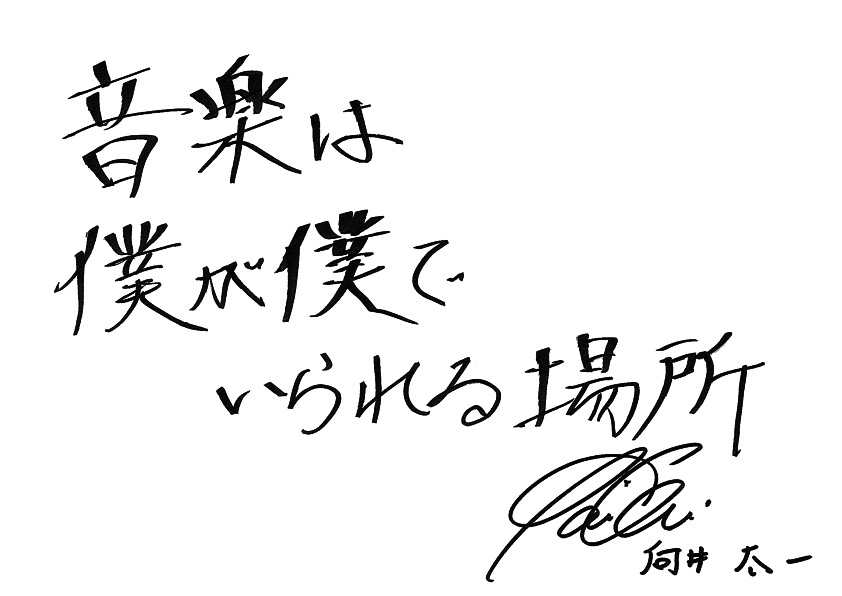 音楽は
僕が僕で
いられる場所
Taichi.
向井 太一